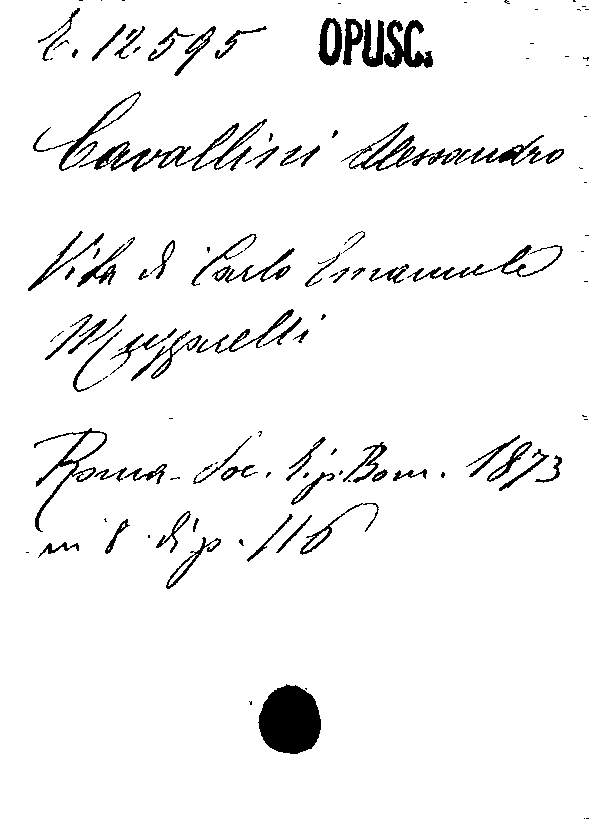 E. 12.595 OPUSC.
Cavallini Alessandro
Vita di Carlo Emanuele
Muzzarelli
Roma - Soc. Tip. Rom. 1873
in 8 di p. 116